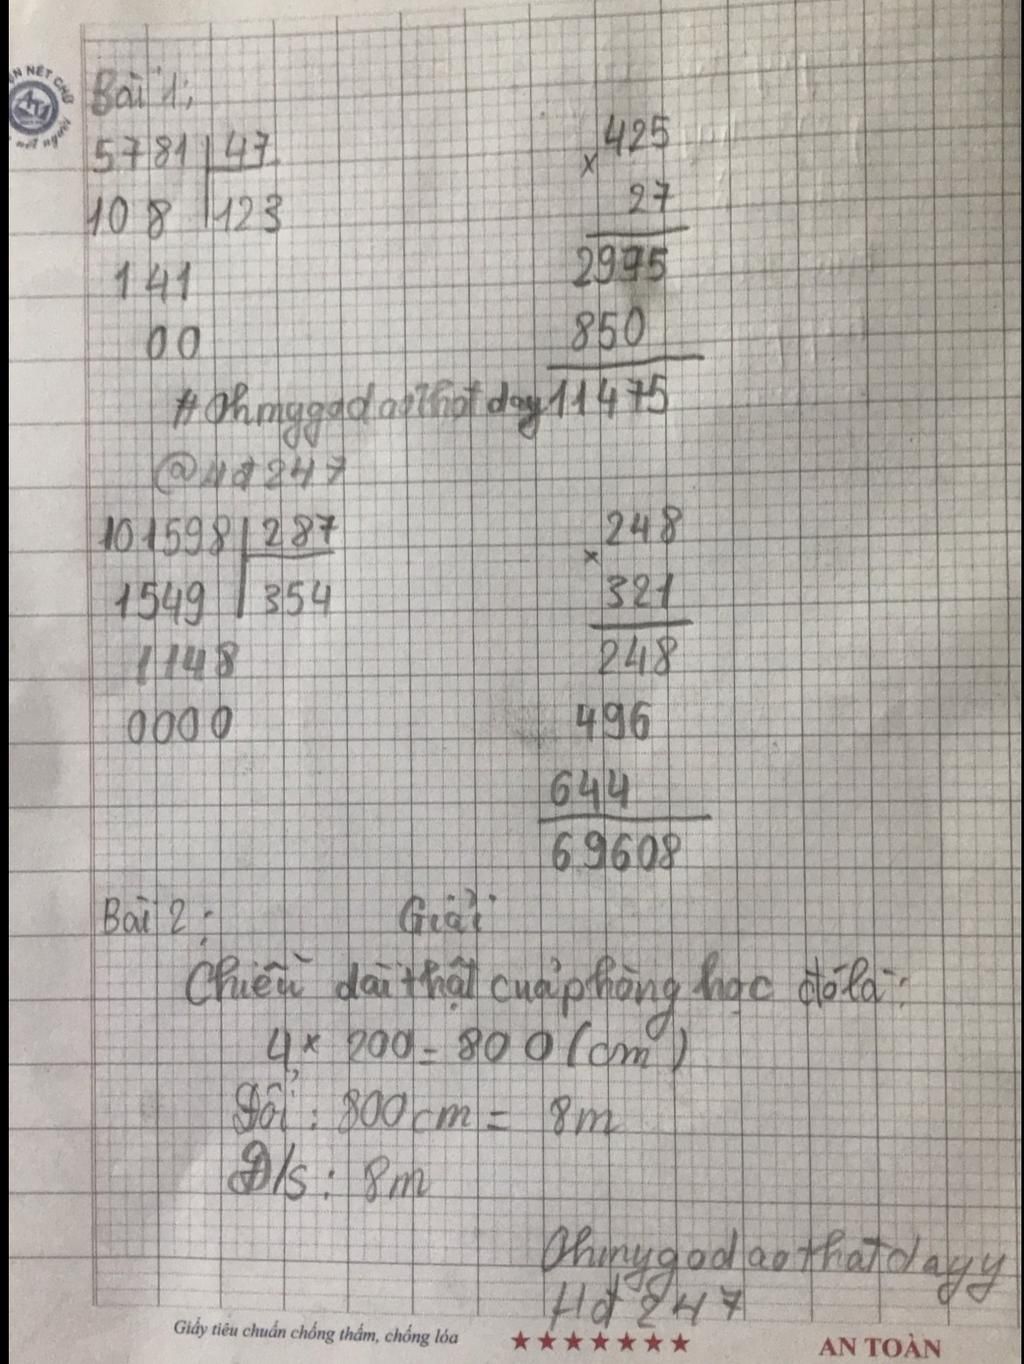 N NÉT CHỮ
nét người
Bài 1:
5781 47
108 123
141
00
425
x
27
2975
850
11475
#Ohmygodaothatday
@Hđ247
101598 287
1549 354
1148
0000
248
x
321
248
496
644
69608
Bài 2: Giải
Chiều dài thật của phòng học đó là:
4 x 200 = 800 (cm)
Đổi: 800cm = 8m
Đ/s: 8m
Ohmygodaothatdayy
Hđ247
Giấy tiêu chuẩn chống thấm, chống lóa ★★★★★★★ AN TOÀN